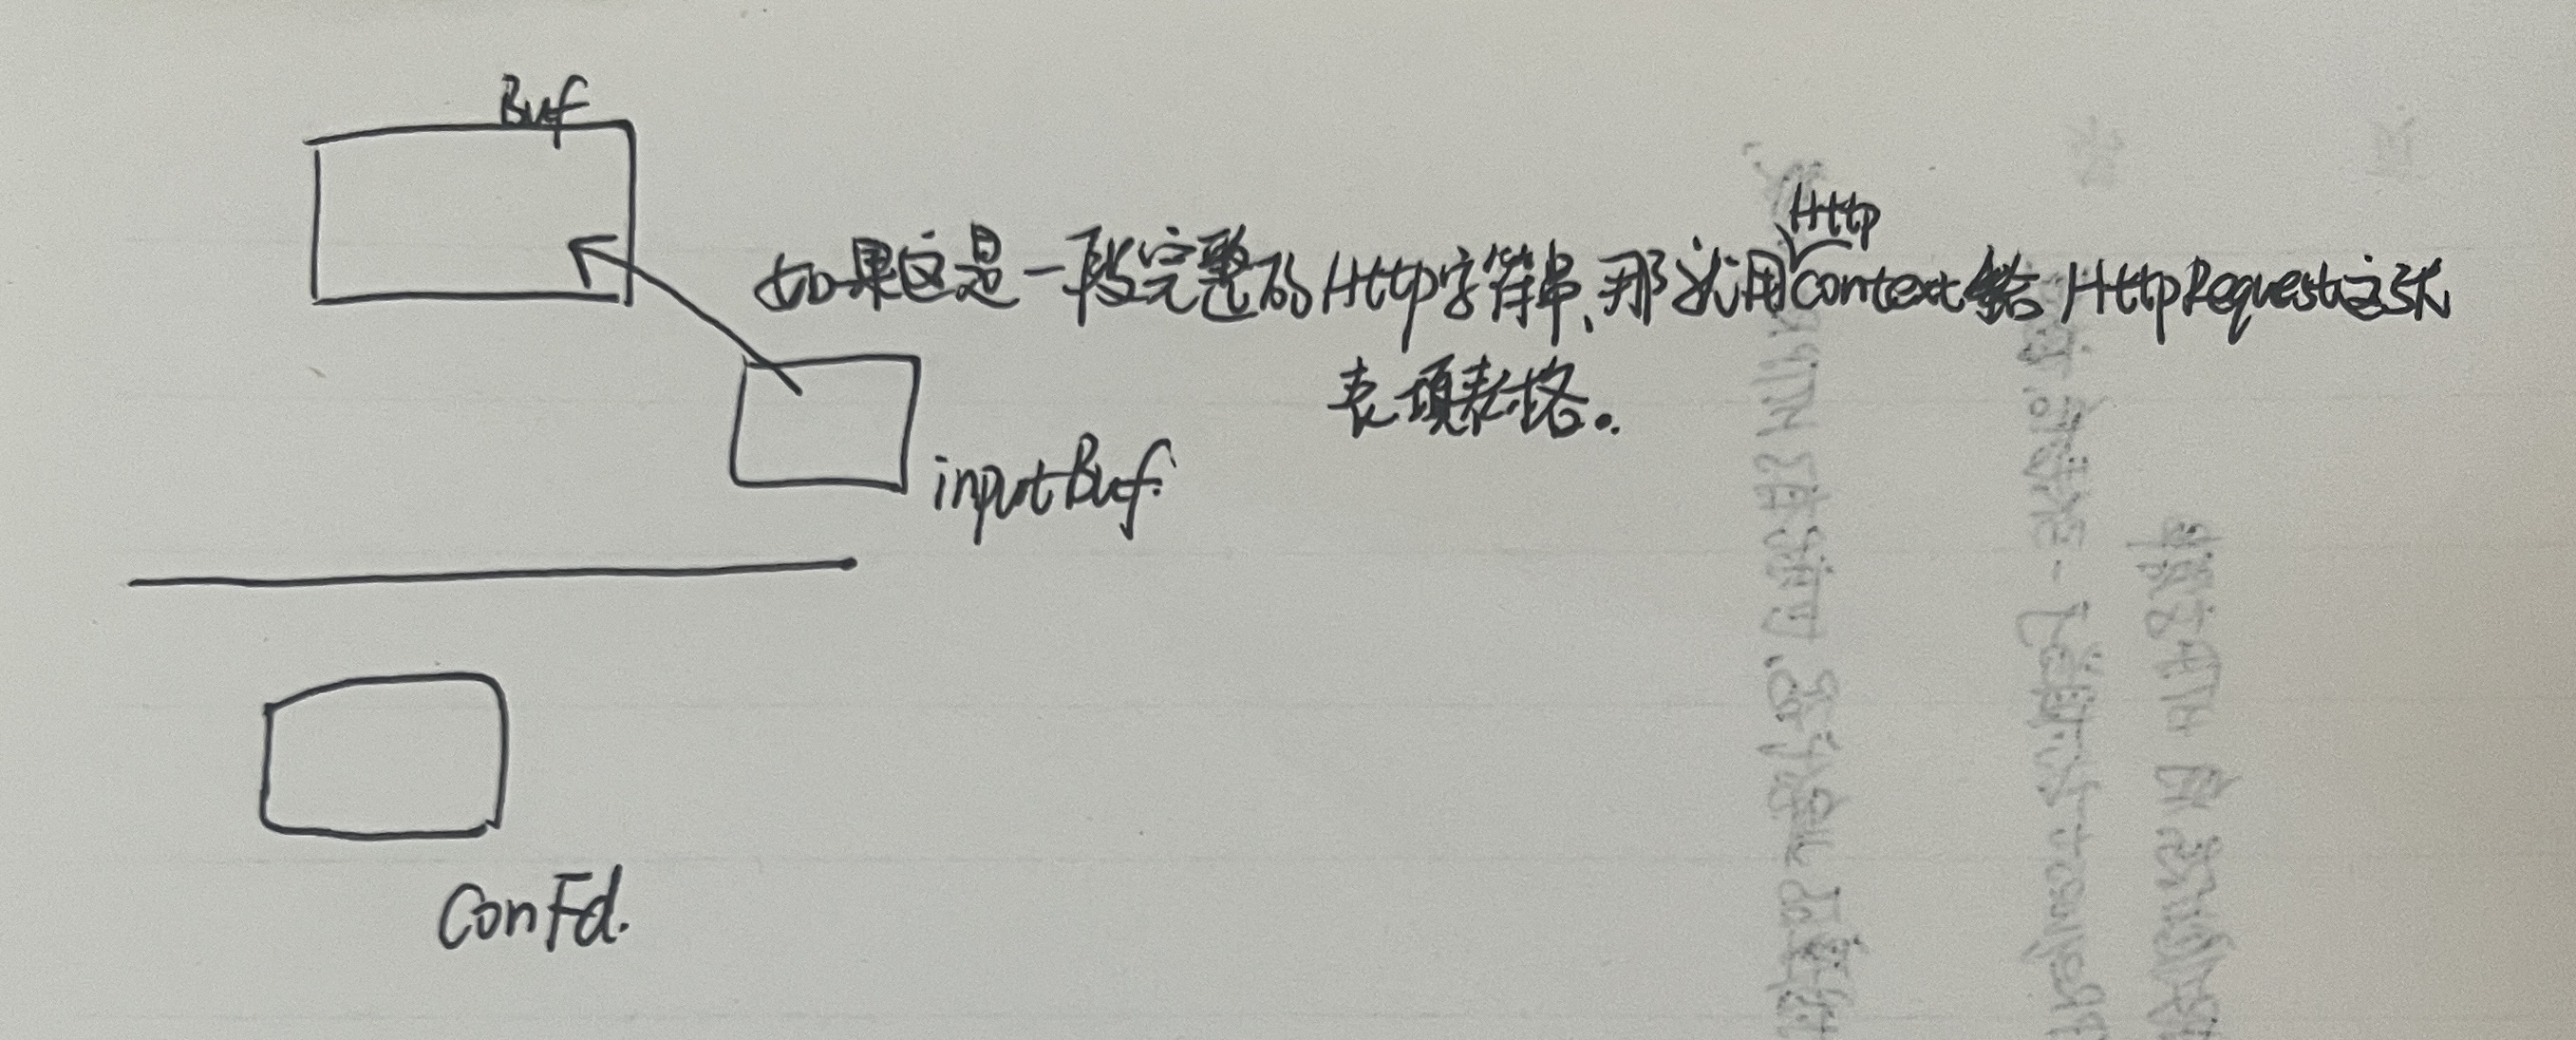 Buf
如果这是一段完整的Http字符串、那就用Httpcontext给HttpRequest这张
表填表格。
inputBuf.
ConFd.